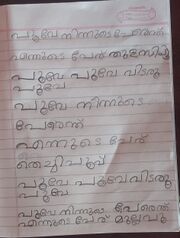 പൂവേ നിന്നുടെ പേരെന്ത്
എന്നുടെ പേര് തുളസിപ്പൂ
പൂവേ പൂവേ വിടരൂ
പൂവേ
പൂവേ നിന്നുടെ
പേരെന്ത്
എന്നുടെ പേര്
തെച്ചിപ്പൂവ്
പൂവേ പൂവേ വിടരൂ
പൂവേ
പൂവേ നിന്നുടെ പേരെന്ത്
എന്നുടെ പേര് മുല്ലപ്പൂ